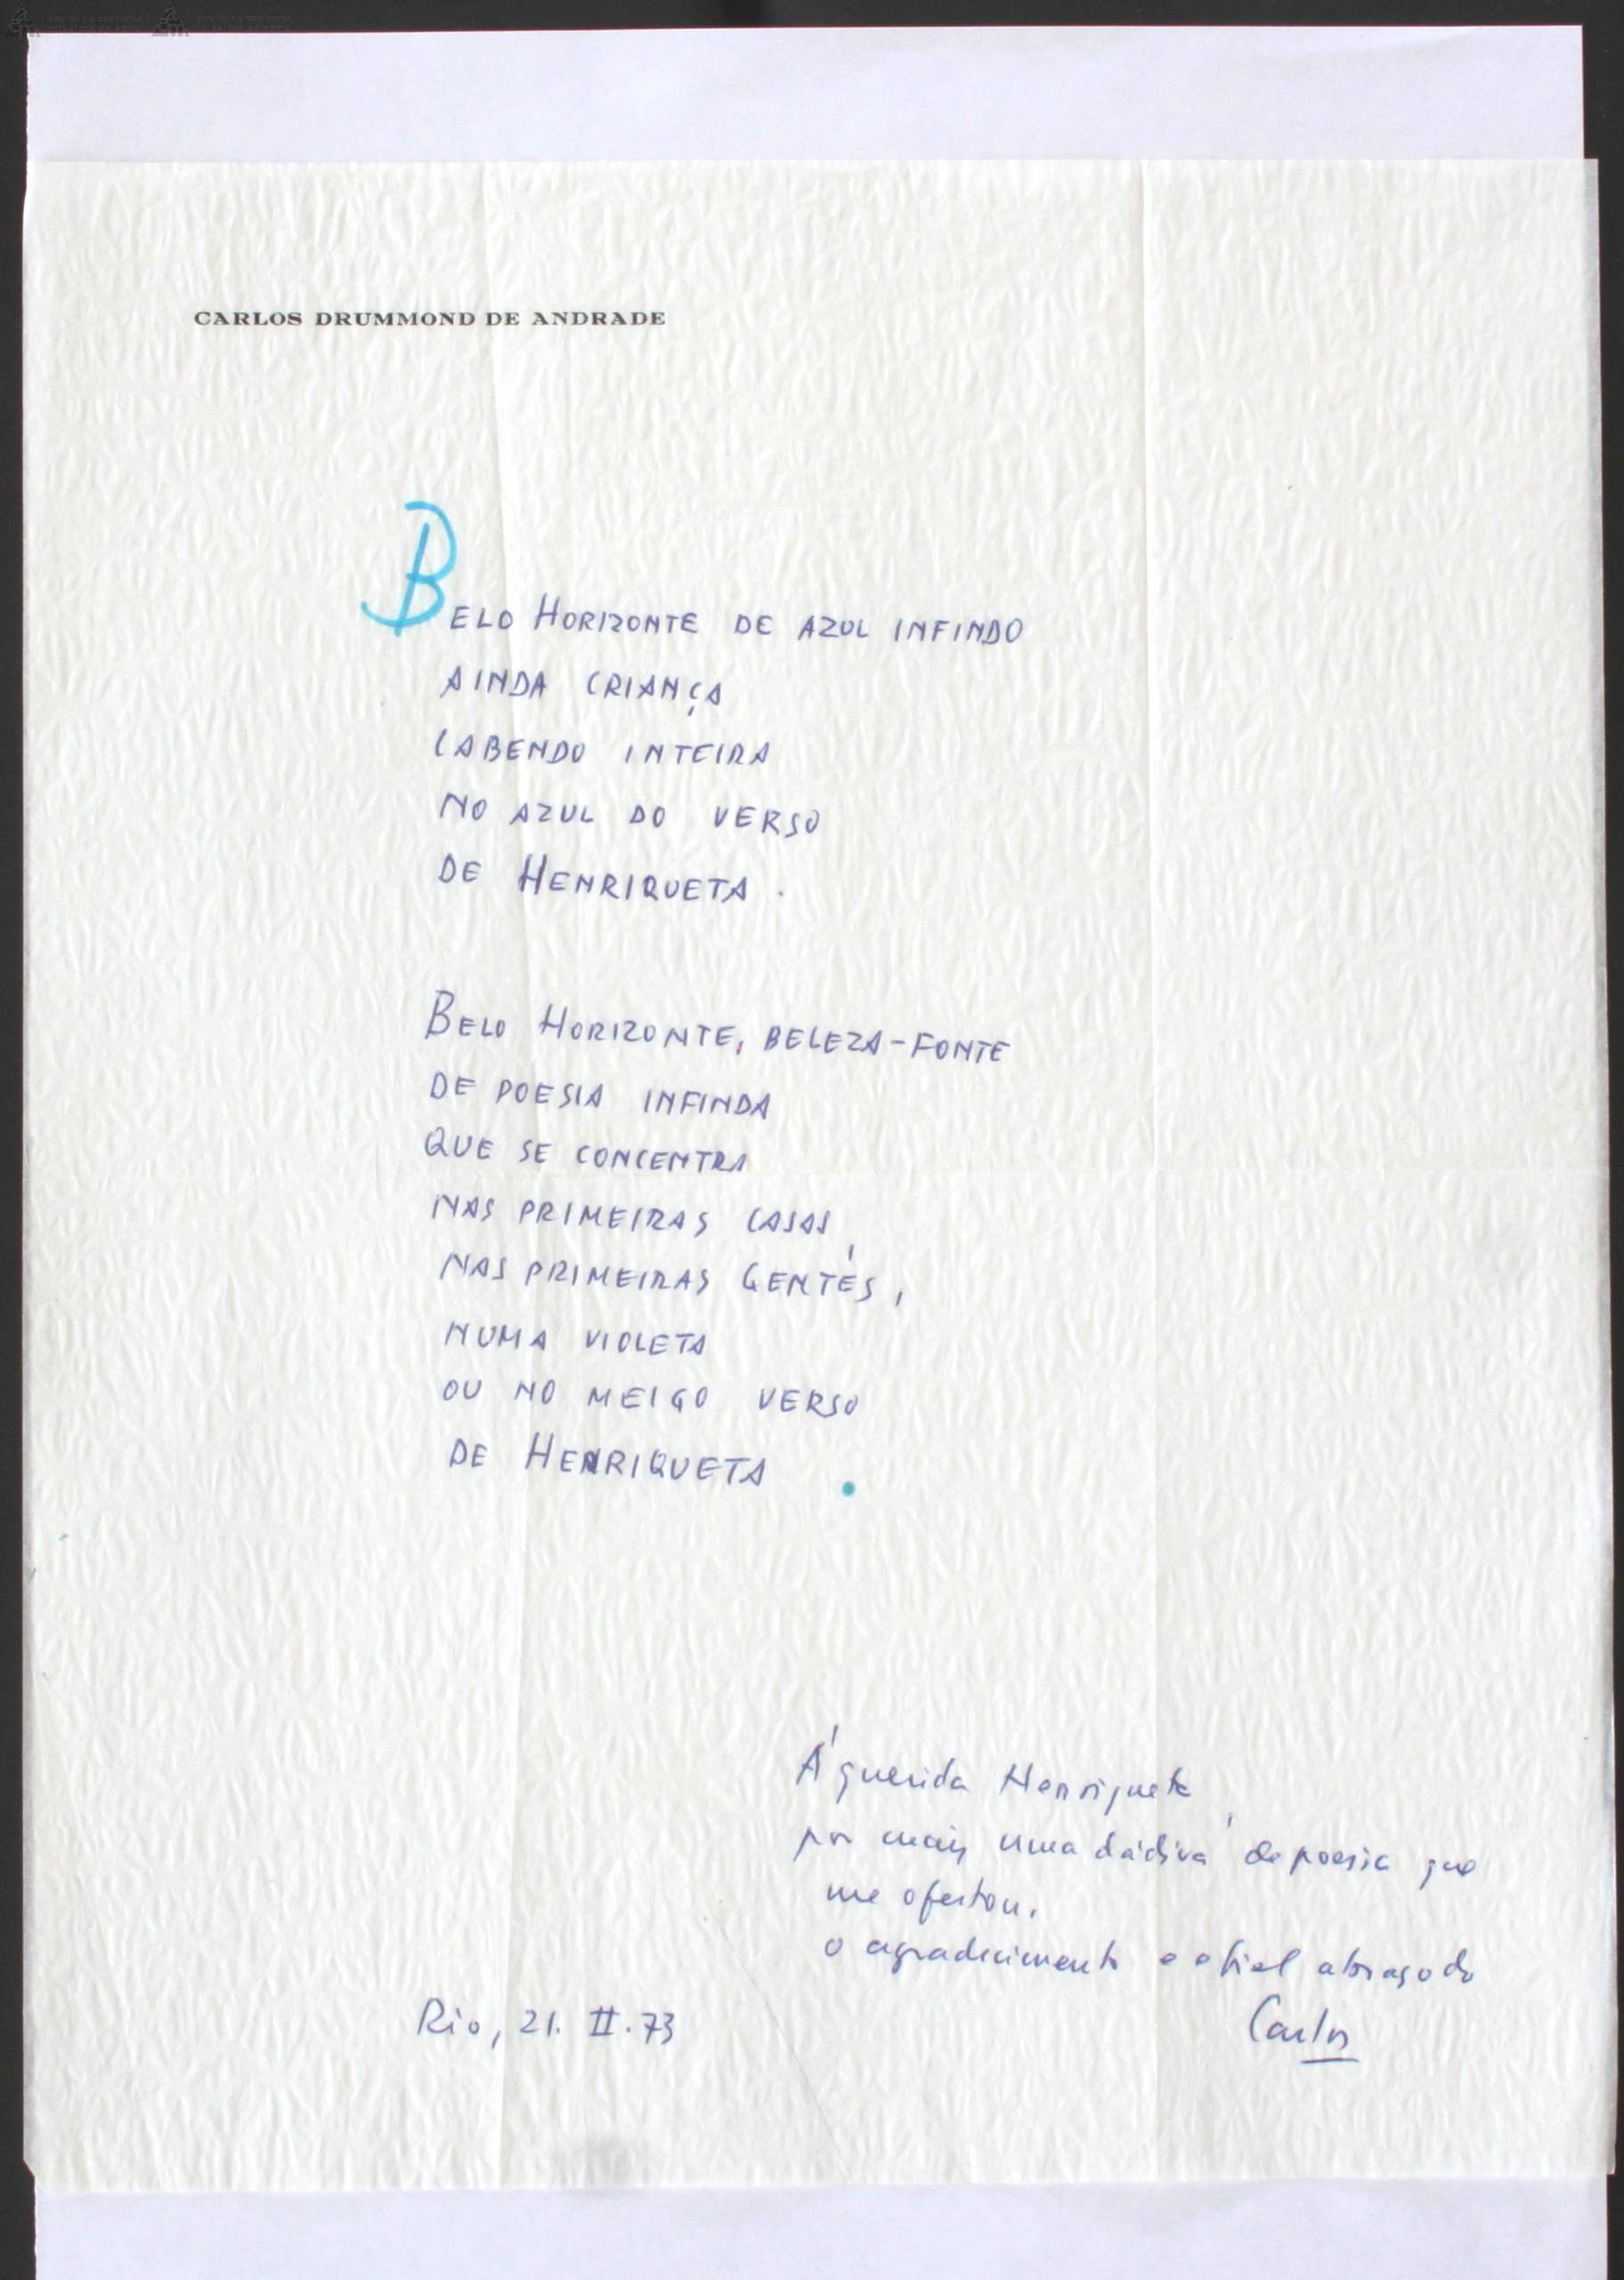 CARLOS DRUMMOND DE ANDRADE
BELO HORIZONTE DE AZUL INFINDO
AINDA CRIANÇA
CABENDO INTEIRA
NO AZUL DO VERSO
DE HENRIQUETA.
BELO HORIZONTE, BELEZA-FONTE
DE POESIA INFINDA
QUE SE CONCENTRA
NAS PRIMEIRAS CASAS,
NAS PRIMEIRAS GENTES,
NUMA VIOLETA
OU NO MEIGO VERSO
DE HENRIQUETA.
À querida Henriqueta,
por mais uma dádiva de poesia que
me ofertou,
o agradecimento e o fiel abraço do
Carlos
Rio, 21. II. 73